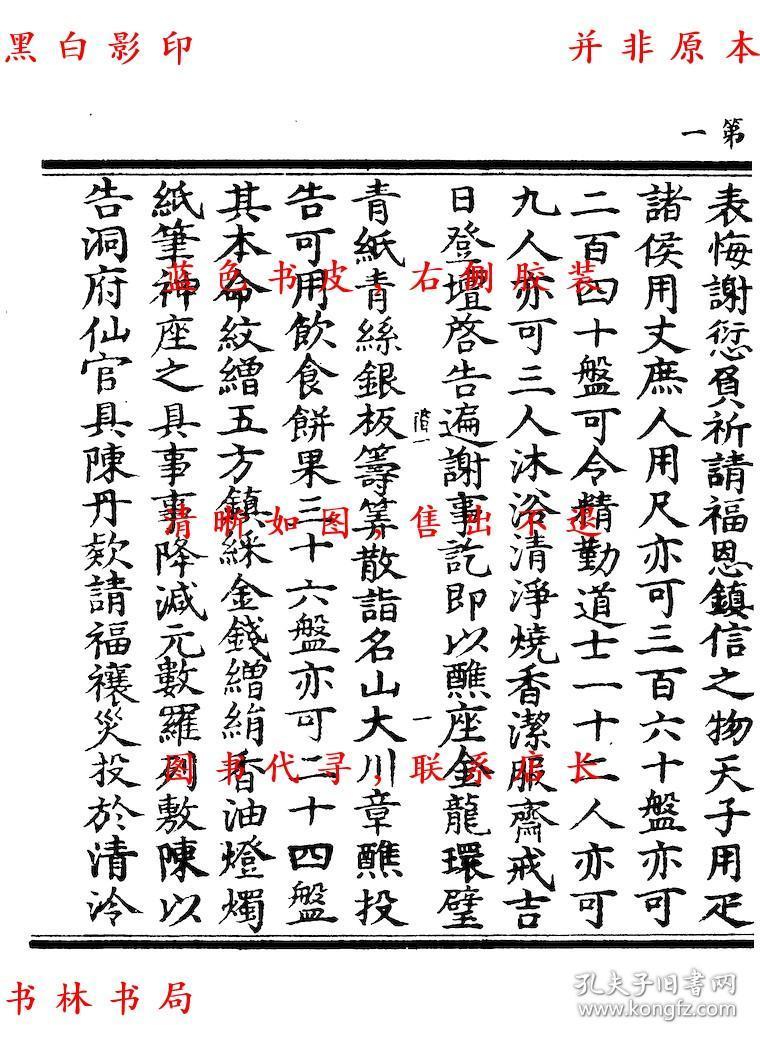 黑白影印
并非原本
第一
表悔謝愆負祈請福恩鎮信之物天子用疋
諸侯用丈庶人用尺亦可三百六十盤亦可
二百四十盤可令精勤道士一十二人亦可
九人亦可三人沐浴清淨燒香潔服齋戒吉
日登壇啓告遍謝事訖即以醮座金龍環璧
青紙青絲銀板籌筭散詣名山大川章醮投
告可用飲食餅果三十六盤亦可二十四盤
其本命紋繒五方鎮綵金錢繒絹香油燈燭
紙筆神座之具事事降減元數羅列敷陳以
告洞府仙官具陳丹欵請福禳災投於清泠
一
蓝色书皮,右侧胶装
清晰如图,售出不退
图书代寻,联系店长
书林书局
孔夫子旧书网
www.kongfz.com